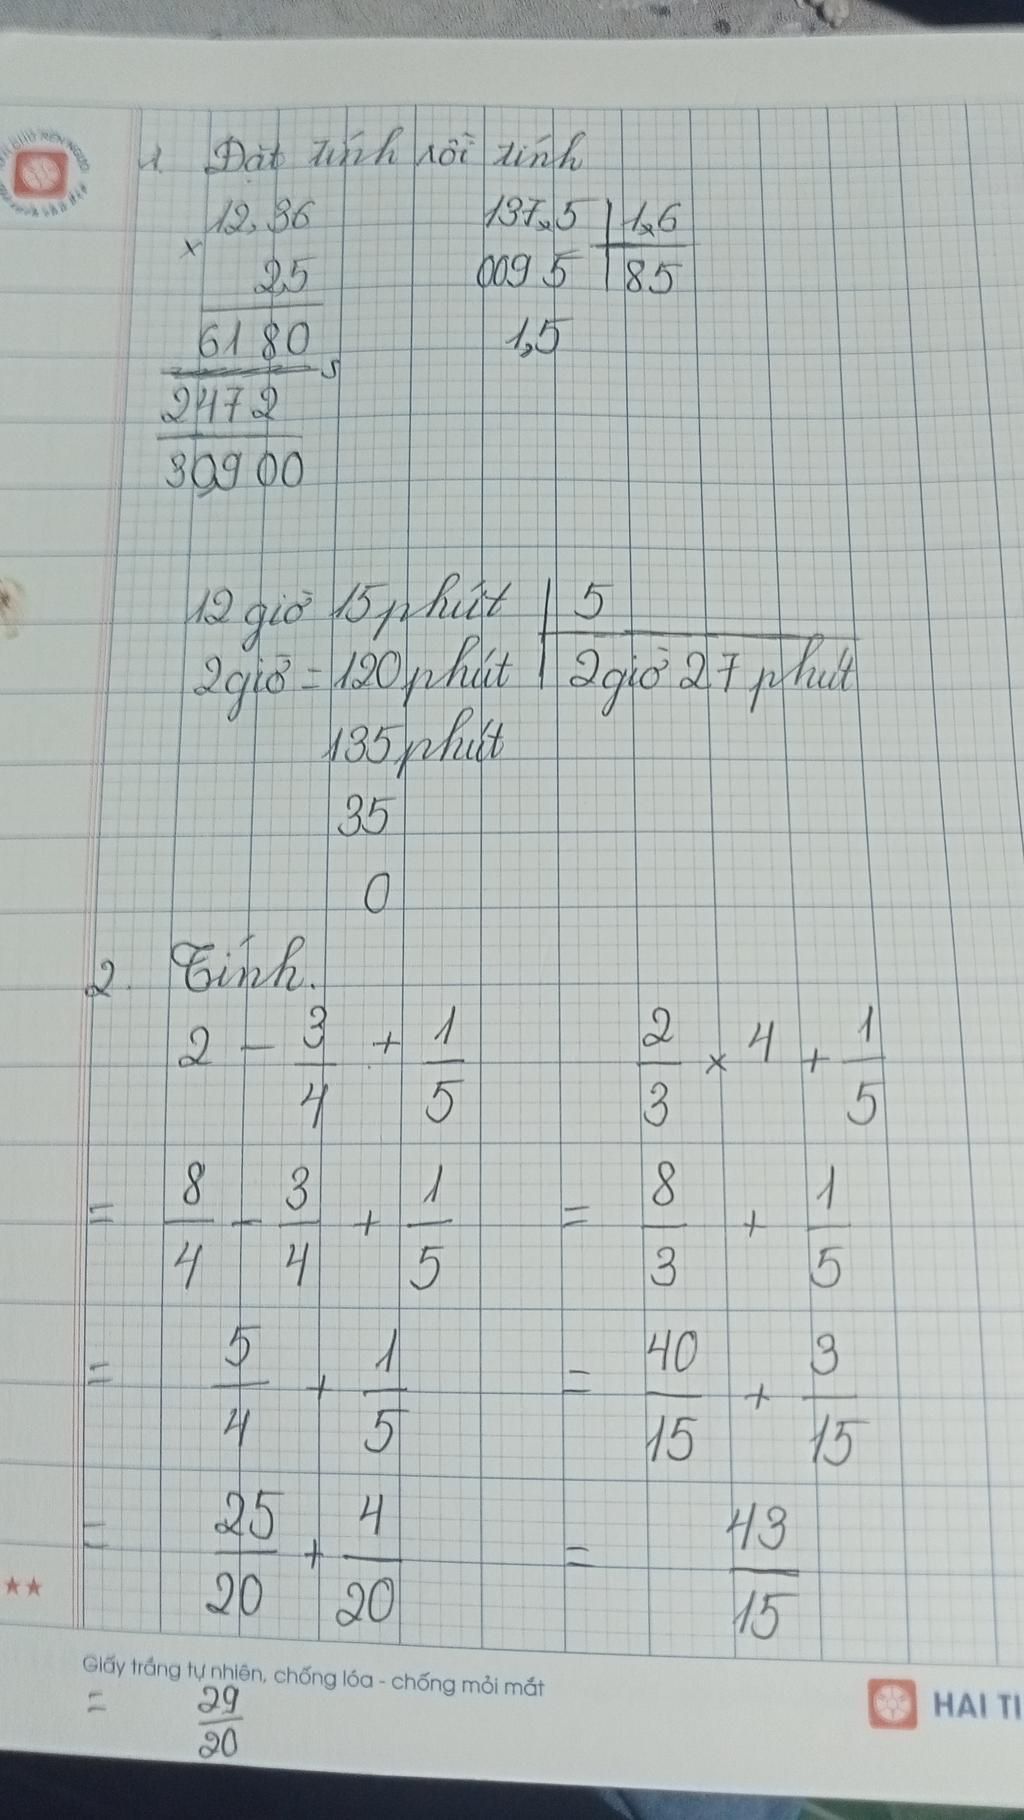 1. Đặt tính rồi tính
12,36
×
25
6180
2472
30,900
137,5 | 1,6
009 5 | 85
1,5
12 giờ 15 phút | 5
2 giờ = 120 phút | 2 giờ 27 phút
135 phút
35
0
2. Tính.
2 - 3/4 + 1/5
= 8/4 - 3/4 + 1/5
= 5/4 + 1/5
= 25/20 + 4/20
= 29/20
2/3 × 4 + 1/5
= 8/3 + 1/5
= 40/15 + 3/15
= 43/15
Giấy trắng tự nhiên, chống lóa - chống mỏi mắt
HẢI TI